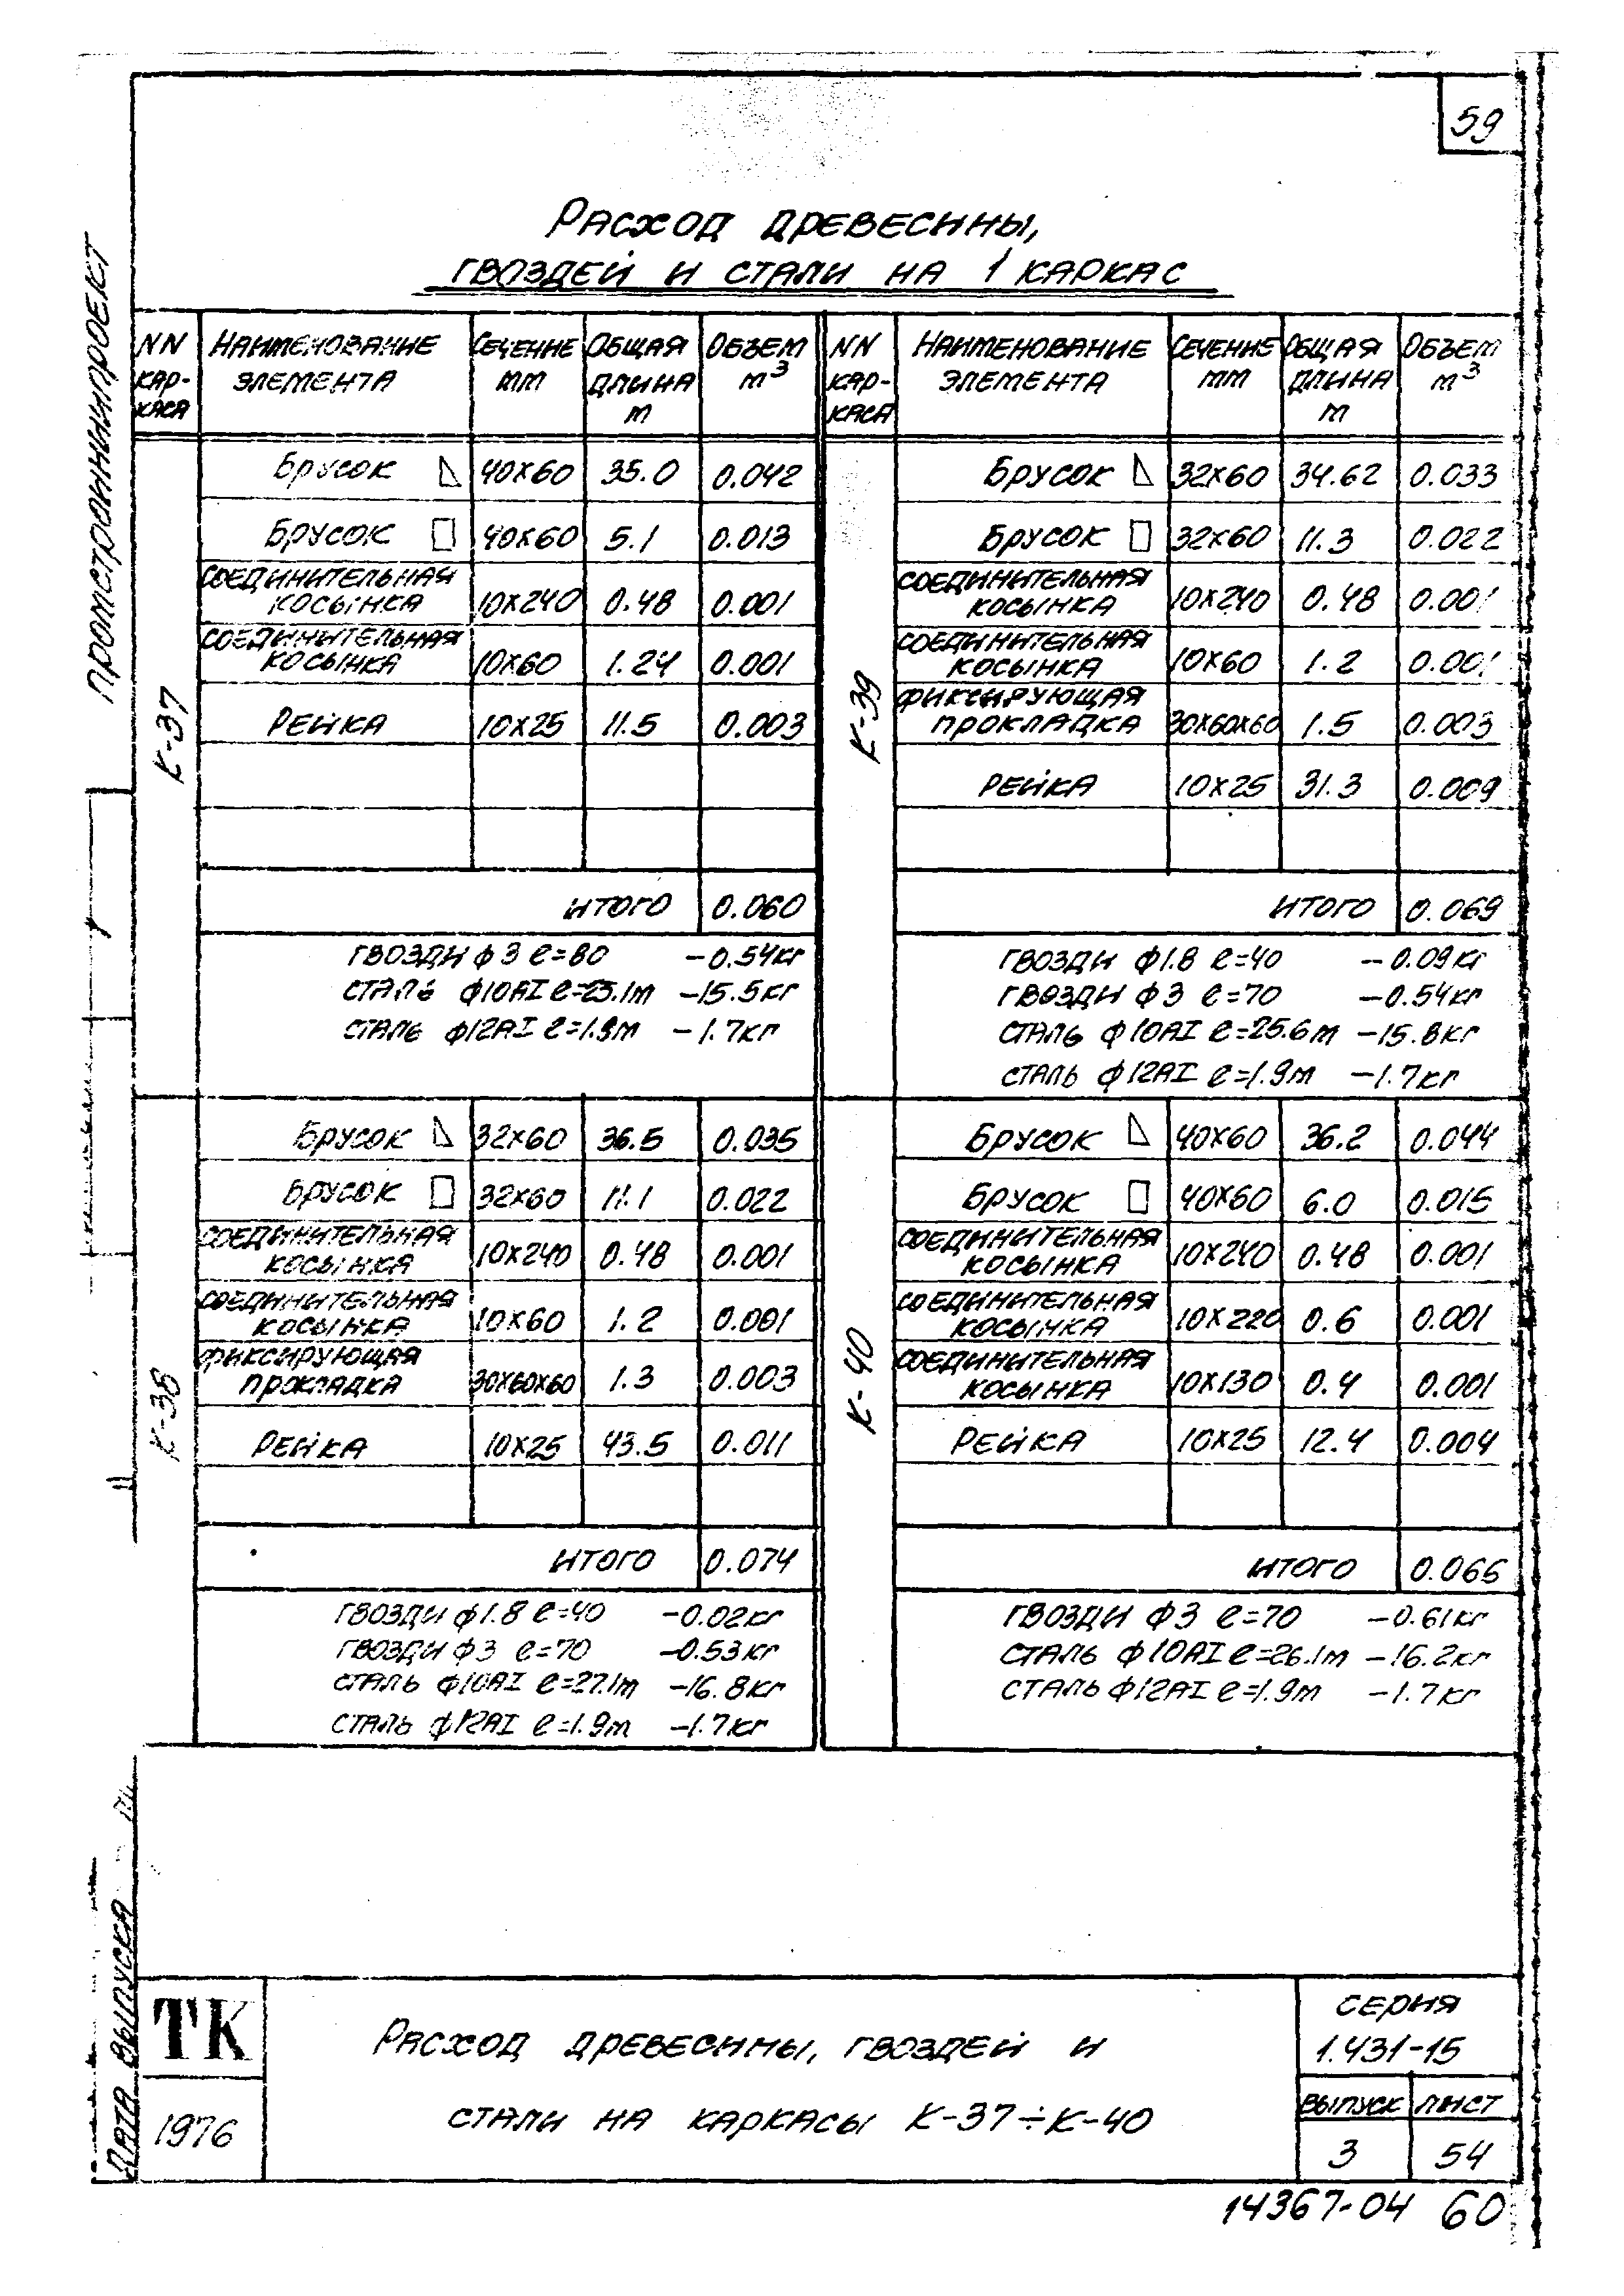 59
Расход древесины,
гвоздей и стали на 1 каркас
ПРОМСТРОЙНИИПРОЕКТ
NN каркаса Наименование элемента Сечение мм Общая длина м Объем м3
К-37
Брусок 40х60 35.0 0.042
Брусок 40х60 5.1 0.013
Соединительная косынка 10х240 0.48 0.001
Соединительная косынка 10х60 1.24 0.001
Рейка 10х25 11.5 0.003
Итого 0.060
Гвозди ф3 ℓ=80 -0.54кг
Сталь ф10АI ℓ=25.1м -15.5кг
Сталь ф12АI ℓ=1.9м -1.7кг
К-38
Брусок 32х60 36.5 0.035
Брусок 32х60 11.1 0.022
Соединительная косынка 10х240 0.48 0.001
Соединительная косынка 10х60 1.2 0.001
Фиксирующая прокладка 30х60х60 1.3 0.003
Рейка 10х25 43.5 0.011
Итого 0.074
Гвозди ф1.8 ℓ=40 -0.02кг
Гвозди ф3 ℓ=70 -0.53кг
Сталь ф10АI ℓ=27.1м -16.8кг
Сталь ф12АI ℓ=1.9м -1.7кг
NN каркаса Наименование элемента Сечение мм Общая длина м Объем м3
К-39
Брусок 32х60 34.62 0.033
Брусок 32х60 11.3 0.022
Соединительная косынка 10х240 0.48 0.001
Соединительная косынка 10х60 1.2 0.001
Фиксирующая прокладка 30х60х60 1.5 0.003
Рейка 10х25 31.3 0.009
Итого 0.069
Гвозди ф1.8 ℓ=40 -0.09кг
Гвозди ф3 ℓ=70 -0.54кг
Сталь ф10АI ℓ=25.6м -15.8кг
Сталь ф12АI ℓ=1.9м -1.7кг
К-40
Брусок 40х60 36.2 0.044
Брусок 40х60 6.0 0.015
Соединительная косынка 10х240 0.48 0.001
Соединительная косынка 10х220 0.6 0.001
Соединительная косынка 10х130 0.4 0.001
Рейка 10х25 12.4 0.004
Итого 0.066
Гвозди ф3 ℓ=70 -0.61кг
Сталь ф10АI ℓ=26.1м -16.2кг
Сталь ф12АI ℓ=1.9м -1.7кг
Дата выпуска
ТК
1976
Расход древесины, гвоздей и
стали на каркасы К-37÷К-40
Серия
1.431-15
Выпуск Лист
3 54
14367-04 60